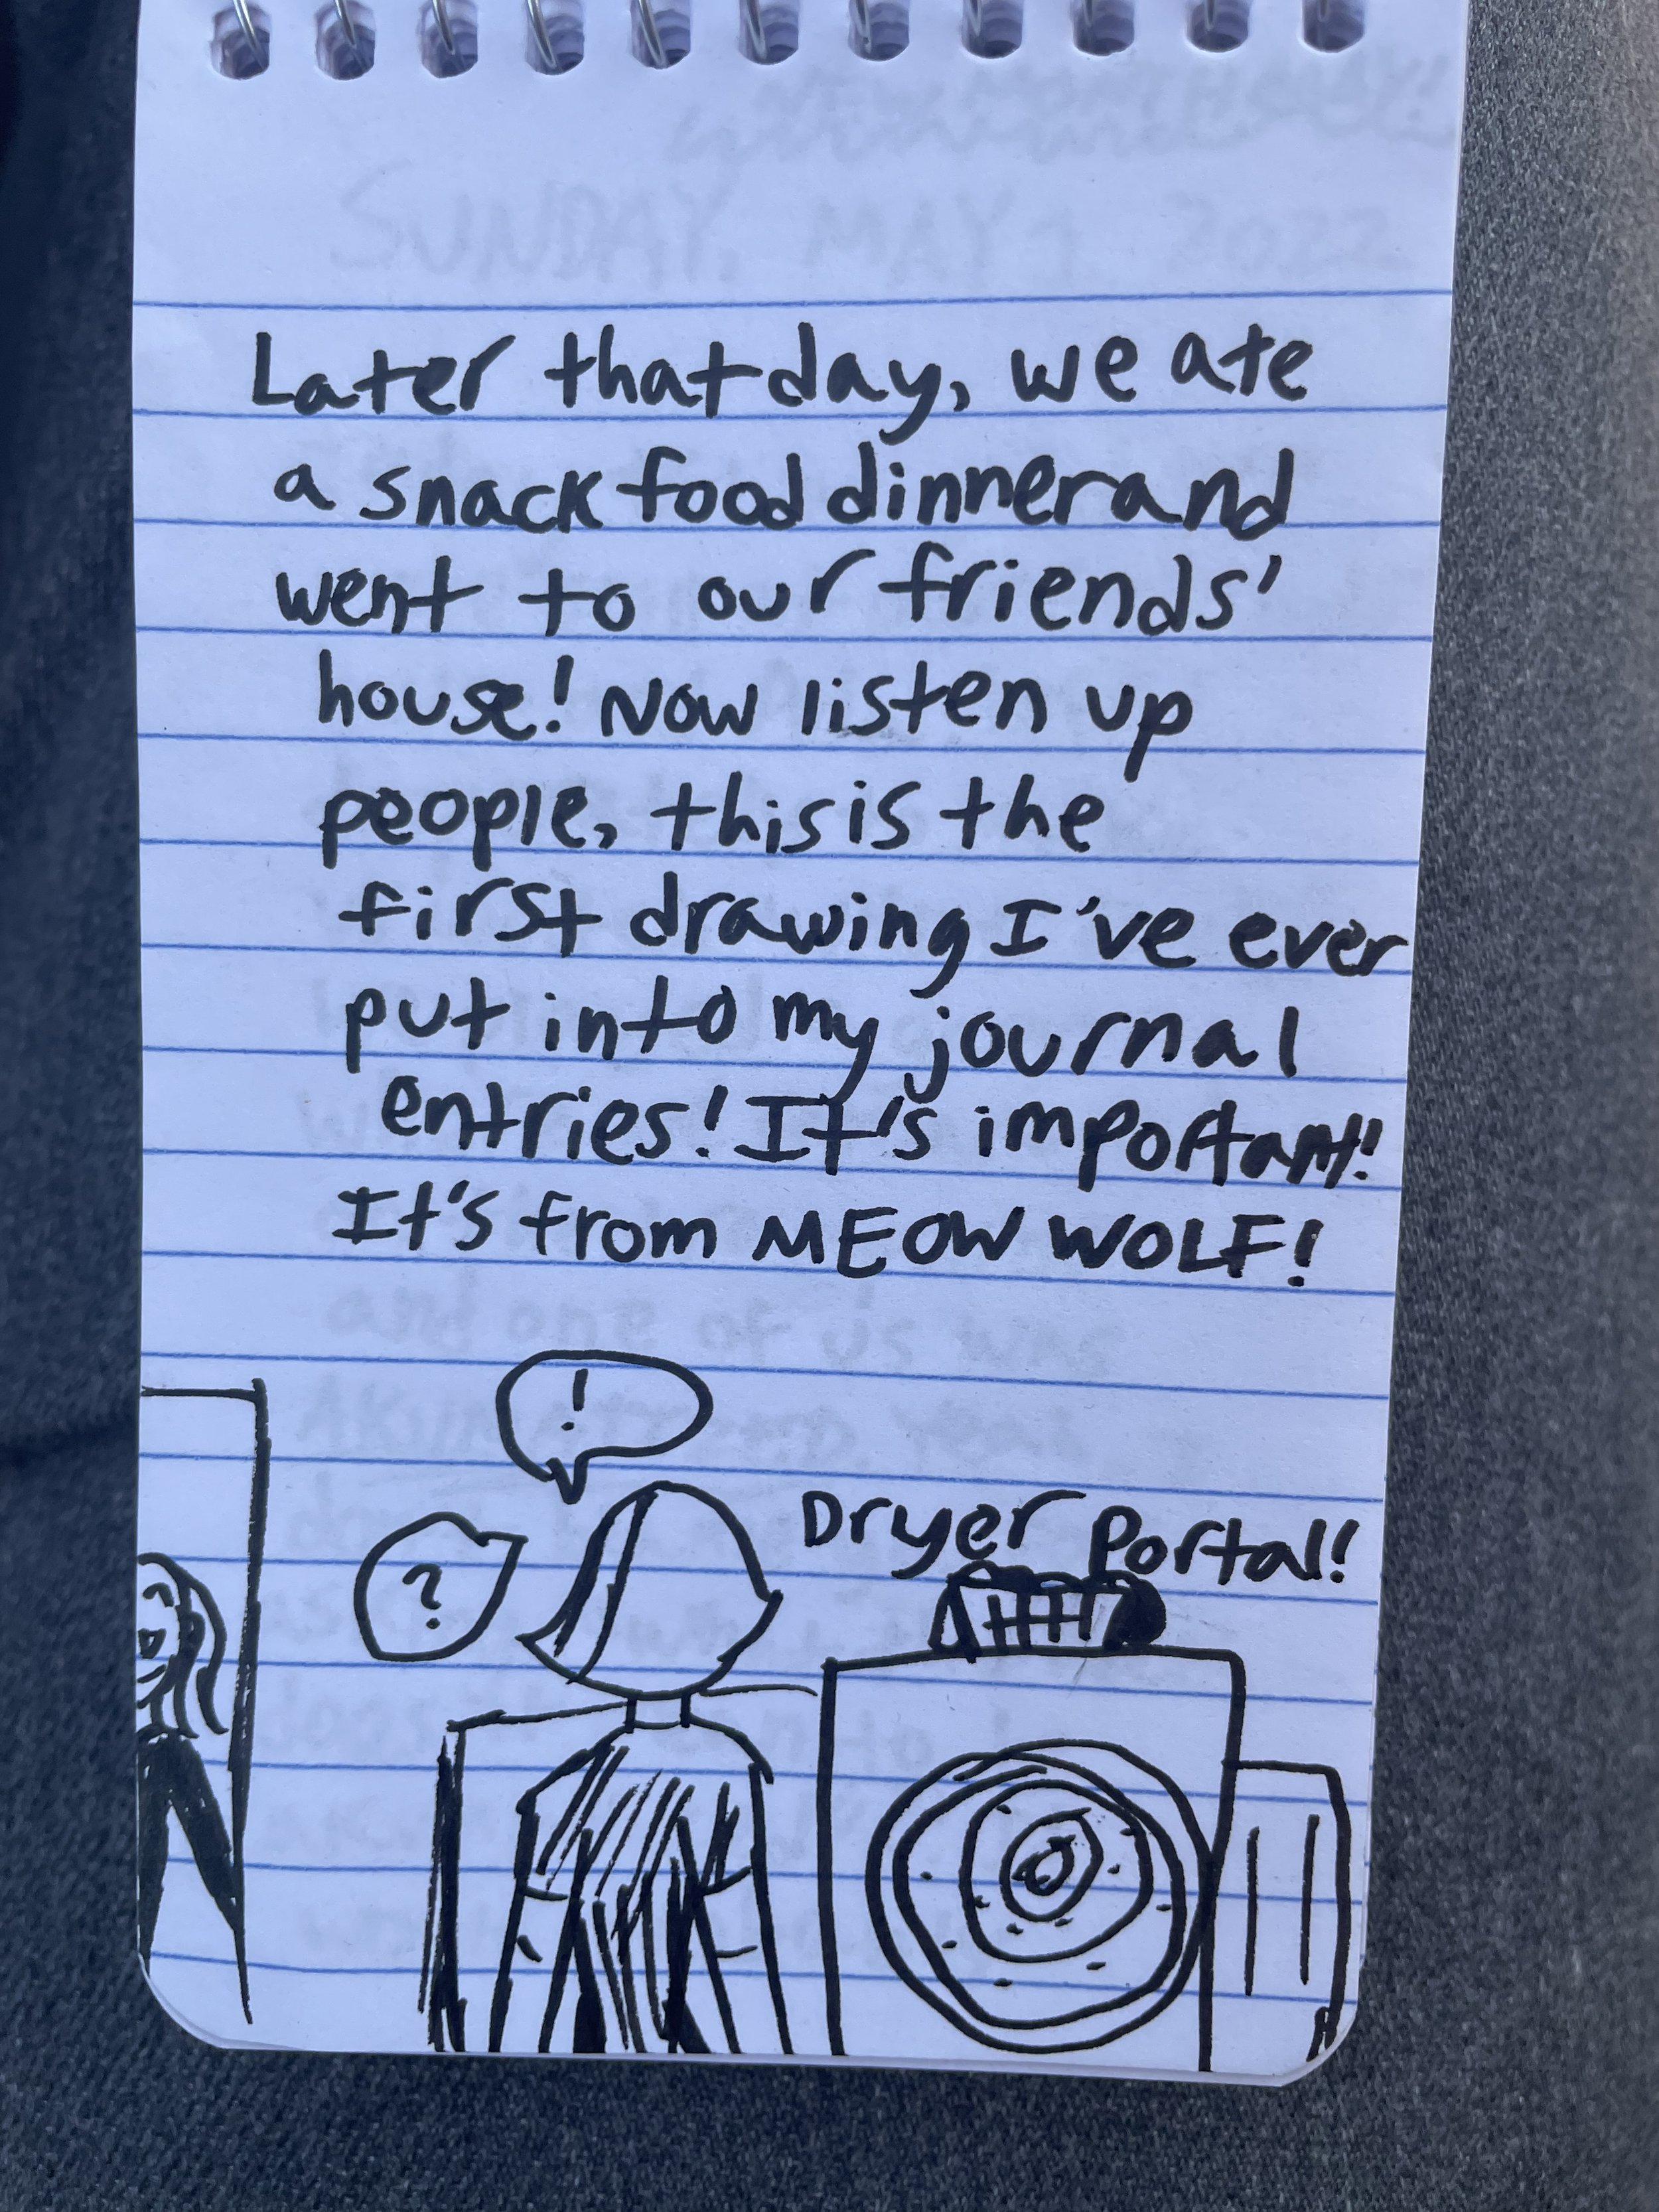 SUNDAY, MAY 1 2022
Later that day, we ate
a snack food dinner and
went to our friends'
house! Now listen up
people, this is the
first drawing I've ever
put into my journal
entries! It's important!
It's from MEOW WOLF!
and one of us was
!
Dryer Portal!
?